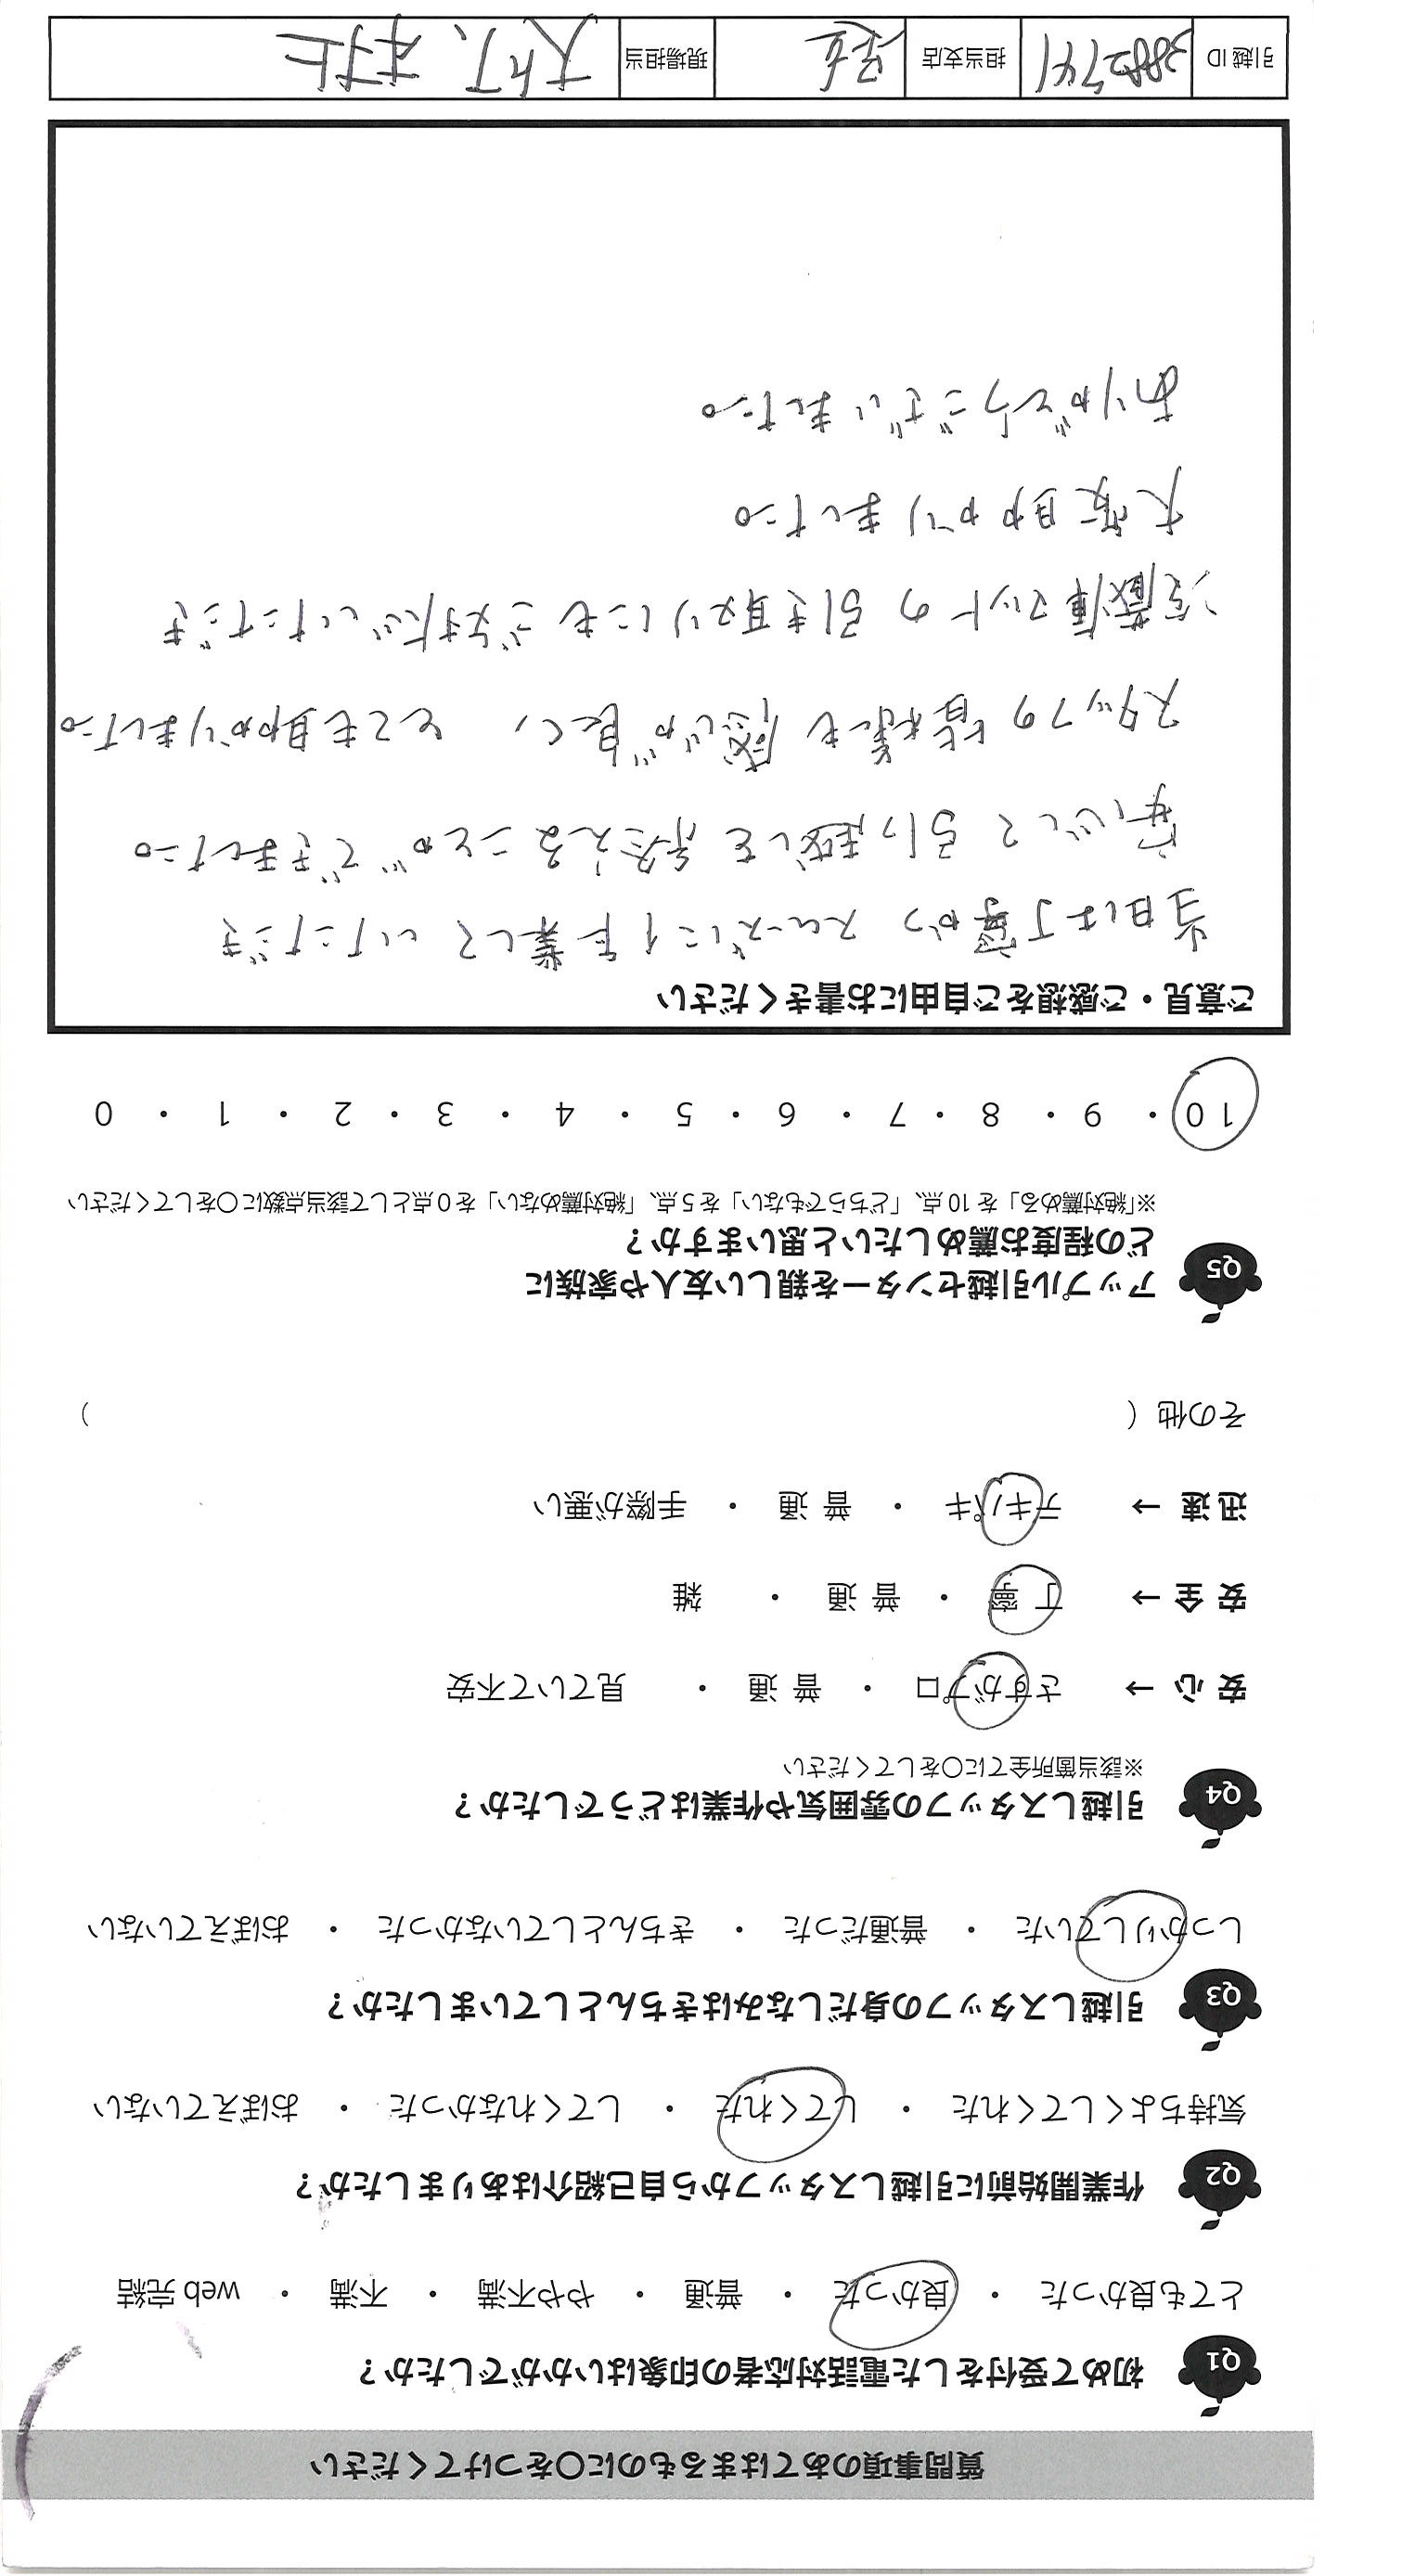 質問事項のあてはまるものに〇をつけてください
Q1 初めて受付をした電話対応者の印象はいかがでしたか？
とても良かった ・ 良かった ・ 普通 ・ やや不満 ・ 不満 ・ web 完結
Q2 作業開始前に引越しスタッフから自己紹介はありましたか？
気持ちよくしてくれた ・ してくれた ・ してくれなかった ・ おぼえていない
Q3 引越しスタッフの身だしなみはきちんとしていましたか？
しっかりしていた ・ 普通だった ・ きちんとしていなかった ・ おぼえていない
Q4 引越しスタッフの雰囲気や作業はどうでしたか？
※該当箇所全てに〇をしてください
安 心 → さすがプロ ・ 普 通 ・ 見ていて不安
安 全 → 丁 寧 ・ 普 通 ・ 雑
迅 速 → テキパキ ・ 普 通 ・ 手際が悪い
その他（ ）
Q5 アップル引越センターを親しい友人や家族に
どの程度お薦めしたいと思いますか？
※「絶対薦める」を 10 点、「どちらでもない」を 5 点、「絶対薦めない」を 0 点として該当点数に〇をしてください
10 ・ 9 ・ 8 ・ 7 ・ 6 ・ 5 ・ 4 ・ 3 ・ 2 ・ 1 ・ 0
ご意見・ご感想をご自由にお書きください
当日は丁寧かつスムーズに作業していただき
安心して引っ越しを終えることができました。
スタッフの皆様も感じが良く、とても助かりました。
冷蔵庫マットの引き取りにもご対応いただき
大変助かりました。
ありがとうございました。
引越 ID 3882741 担当支店 現場担当